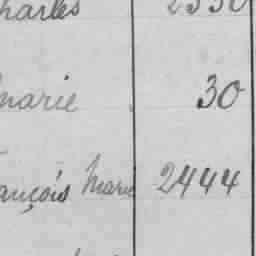 harles 2330
marie 30
ançois Marie 2444